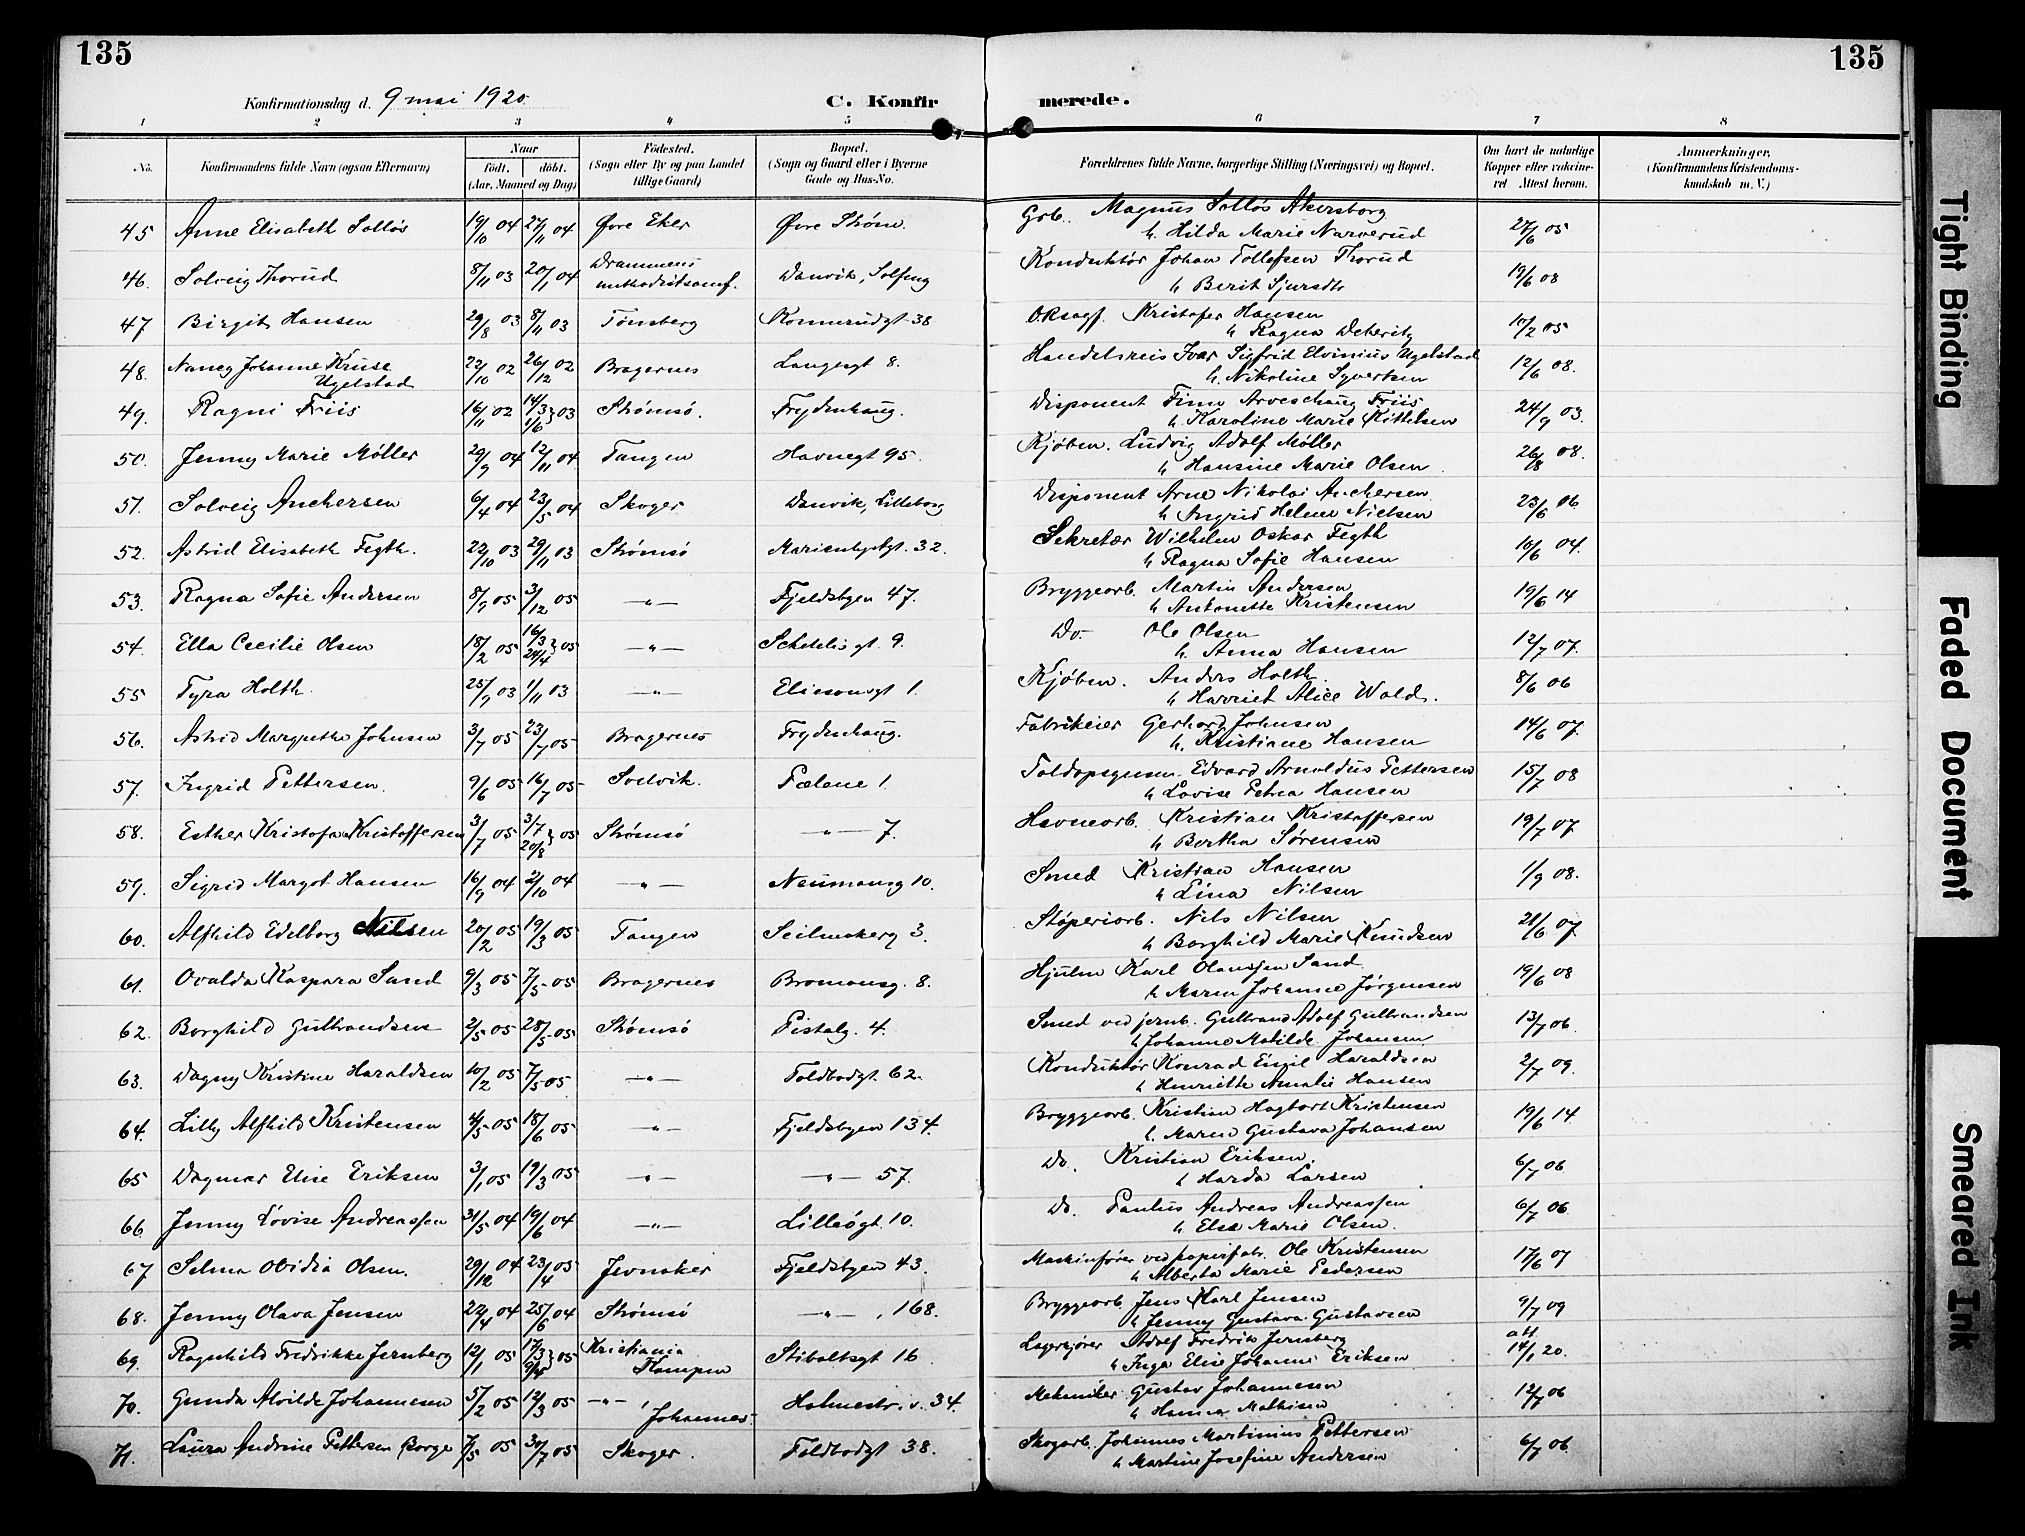 135
135
Konfirmationsdag d. 9 mai 1920.
C. Konfir
merede.
1 2 3 4 5 6 7 8
No.
Konfirmandens fulde Navn (ogsaa Efternavn)
Naar
født. døbt.
(Aar, Maaned og Dag)
Fødested.
(Sogn eller By og paa Landet
tillige Gaard)
Bopæl.
(Sogn og Gaard eller i Byerne
Gade og Hus-No.
Forældrenes fulde Navne, borgerlige Stilling (Næringsvei) og Bopæl.
Om havt de naturlige
Kopper eller vakcine-
ret Attest herom.
Anmærkninger.
(Konfirmandens Kristendoms-
kundskab m. V.)
45 Anne Elisabeth Solløs 19/10 04 27/11 04 Øvre Eker Øvre Strøm. Grb. Magnus Solløs Akersborg 27/6 05
h. Hilda Marie Narverud
46. Solveig Thorud 8/11 03 20/1 04 Drammens methodistsamf. Danvik, Solfeng Konduktør Johan Tollefsen Thorud 19/6 08
h Berit Sjursdtr
47 Birgit Hansen 29/8 03 8/11 03 Tønsberg Konnerudgt 38 O.Rsagf. Kristofer Hansen 10/2 05
h Ragna
48. Nancy Johanne Kruse Ugelstad 22/10 02 26/12 02 Bragernes Langesgt 8. Handelsreis Ivar Sigfrid Elvinius Ugelstad 12/6 08.
h. Nikoline Syvertsen
49. Ragni Friis 16/11 02 14/3 1/6 } 03 Strømsø. Frydenhaug. Disponent Finn Arveschoug Friis 24/9 03.
h. Karoline Marie Kittelsen
50. Jenny Marie Møller 29/9 04 12/11 04 Tangen Havnegt 95. Kjøbm. Ludvig Adolf Møller 26/8 08.
h Hansine Marie Olsen
51. Solveig Anchersen 6/4 04 23/5 04 Skoger Danvik, Lilleborg Disponent Arne Nikolai Anchersen 23/6 06
h Ingrid Helene Nielsen
52. Astrid Elisabeth Fegth. 22/10 03 29/11 03 Strømsø Marienlystgt. 32. Sekretær Wilhelm Oskar Fegth 10/6 04.
h Ragna Sofie Hansen
53. Ragna Sofie Andersen 8/9 05 3/12 05 —"— Fjeldsbyen 47. Bryggeorb. Martin Andersen 19/6 14
h Antonette Kristensen
54. Ella Cecilie Olsen 18/2 05 16/3 24/4 } 05 —"— Scheelis gt. 9. Do. Ole Olsen 12/7 07.
h. Anna Hansen
55 Tyra Holth. 25/9 03 1/11 03 —"— Eliesonsgt 1. Kjøbm. Anders Holth. 8/6 06
h Harriet Alice Wold.
56. Astrid Margrethe Johnsen 3/7 05 23/7 05 Bragernes Frydenhaug. Fabrikeier Gerhard Johnsen 14/6 07.
h. Kristiane Hansen
57. Ingrid Pettersen. 9/6 05 16/7 05 Svelvik. Pælene 1. Toldopsynsm. Edvard Arnoldus Pettersen 15/7 08
h Lovise Petrea Hansen
58. Esther Kristofa Kristoffersen 3/7 05 3/7 20/8 } 05 Strømsø —"— 7. Havneorb. Kristian Kristoffersen 19/7 07
h Bertha Sørensen
59. Sigrid Margot Hansen 16/9 04 2/10 04 —"— Neumansg 10. Smed Kristian Hansen 1/9 08.
h Lina Nilsen
60. Alfhild Edelborg Nilsen 20/2 05 19/3 05 Tangen Seilmakerg 3. Støperiorb. Nils Nilsen 21/6 07
h Borghild Marie Knudsen
61. Ovalda Kaspara Sand 9/3 05 7/5 05 Bragernes Bromansg. 8. Hjulm Karl Olaussen Sand. 19/6 08
h Maren Johanne Jørgensen
62. Borghild Gulbrandsen 2/5 05 28/5 05 Strømsø Pistolg. 4. Smed ved jernb. Gulbrand Adolf Gulbrandsen 13/7 06.
h Johanne Matilde Johansen
63. Dagny Kristine Haraldsen 10/2 05 7/5 05 —"— Toldbodgt. 62. Konduktør Konrad Engil Haraldsen 2/7 09.
h Henriette Amalie Hansen
64. Lilly Alfhild Kristensen 4/5 05 18/6 05 —"— Fjeldsbyen 134. Bryggeorb. Kristian Hagbart Kristensen 19/6 14.
h. Maren Gustava Johansen
65 Dagmar Elise Eriksen 3/1 05 19/3 05 —"— —"— 57. Do. Kristian Eriksen. 6/7 06
h Harda Larsen
66. Jenny Lovise Andreassen 31/5 04 19/6 04 —"— Lilleøgt. 10. Do. Paulus Andreas Andreassen 6/7 06
h Elsa Marie Olsen.
67 Selma Obidia Olsen. 29/12 04 23/4 05 Jevnaker Fjeldsbyen 43. Maskinfører ved papirfabr. Ole Kristensen 17/6 07
h Alberta Marie Pedersen
68. Jenny Olava Jensen 22/4 04 25/6 04 Strømsø —"— , 168. Bryggeorb. Jens Karl Jensen 9/7 09
h Jenny Gustava Gustavsen
69. Ragnhild Fredrikke Jernberg 12/1 05 17/3 9/4 } 05 Kristiania Kampen Stiboltsgt 16. Lagerkjører Adolf Fredrik Jernberg att 14/1 20.
h Inga Elise Johanne Eriksen
70. Gunda Alvilde Johannesen 5/2 05 12/3 05 —"—, Johannes- Holmestr. v. 34. Mekaniker Gustav Johannesen 12/7 06
h Hanna Mathisen
71. Laura Andrine Pettersen Borge 7/5 05 30/7 05 Skoger. Toldbodgt 38. Skogarb. Johannes Martinius Pettersen 6/7 06.
h Martine Josefine Andersen
Tight Binding
Faded Document
Smeared Ink